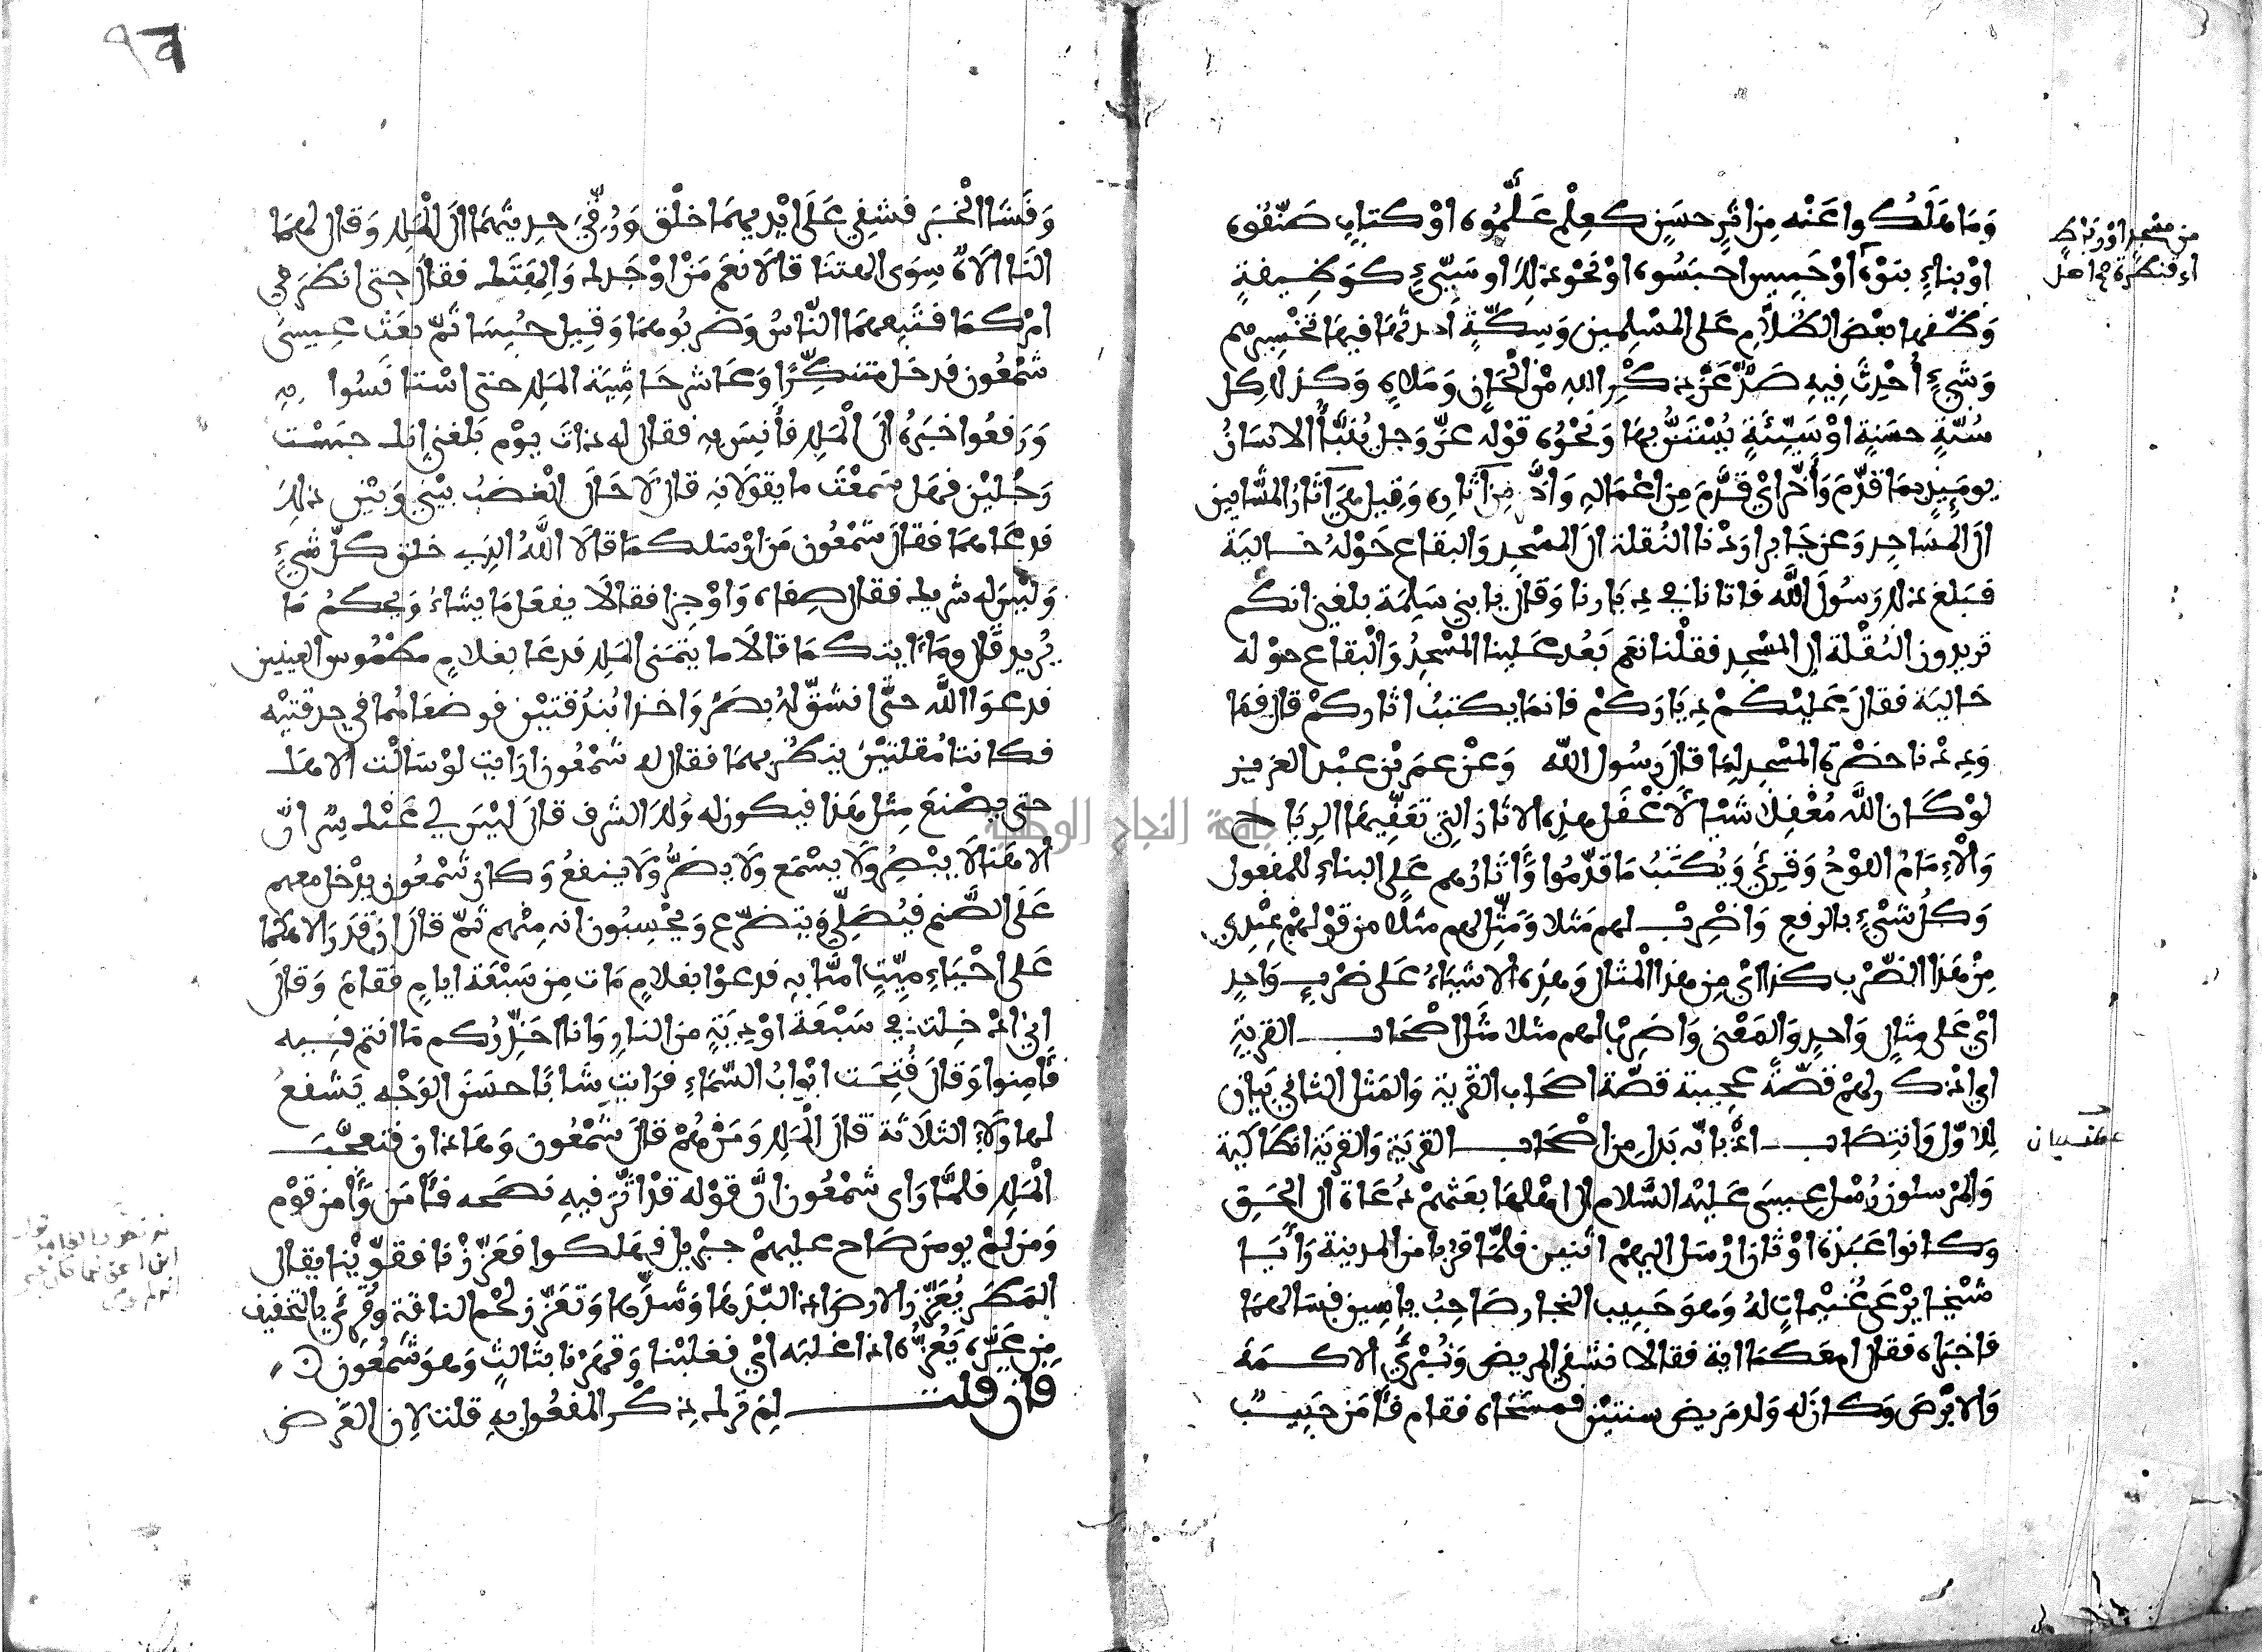 وَمَا هَلَكُوا عَنْه مِن اثَرٍ حسَنٍ كعِلْم عَلَّمُوه اوْ كتابٍ صَنّفُوه
اوْ بناءٍ بنوْه اوْ حَبِيس احبَسُوه اوْ نحْو ذلك او سَيّىءٍ كوَظِيفةٍ
وَظّفها بعْض الظُّلاَّم على المسْلِمين وَسِكّةٍ احدثَها فيها تخْسِيرهم
وَشيْءٍ أُحْدِثَ فِيهِ صَدٌّ عَنْ ذكْرِ الله مْن الْحَانٍ وَمَلاهٍ وَكذلك كل
سُنّةٍ حسَنةٍ اوْ سَيّئَةٍ يُسْتَنُّ بها وَنَحْوُه قوْله عزّ وَجل يُنَبَّأُ الانسَانُ
يومَئِذٍ بمَا قدّمَ وَأَخّرَ ايْ قدَّمَ مِن اعْمَالِهِ وَاخَّرَ مِن آثارِه وَقيل هي آثارُ المشّايين
الى المسَاجِد وَعن جَابر ارَدْنا النُقلة الى المسْجِد وَالبقاع حَوْلهُ خَالية
فبَلغ ذلك رَسُولَ اللَّه فَاتانا في دِيَارنا وَقالَ يا بني سَلِمَة بلغني انكم
تريدون النُقْلة الى المسْجِد فقلْنا نعَم بَعُد عَلينا المسْجِدُ وَالْبقاع حوْله
خَالية فقالَ عَليْكمْ دِيَارَكمْ فانمَا يكتبُ اثاركمْ قال فمَا
وَدِدْنا حضْرةَ المسْجد لِمَا قالَ رسُول اللّه وَعنْ عمَر بْن عبْد العزيز
لوْ كَان اللَّه مُغْفِلاً شيْا لَأَغْفَل هذِه الاثارَ التِي تعَفِّيهَا الرِياح
وَالْاِمَامُ اللوْحُ وَقُرِئَ وَيُكتَبُ مَا قدّمُوا وَآثارُهم عَلى البناءِ للمفعول
وَكلُّ شيْءٍ بالرفعِ وَاضْرِبْ لهم مَثلا وَمَثِّل لهم مثلًا من قوْلهمْ عِنْدِي
مِنْ هَذا الضّرْب كذا ايْ مِن هذا الْمثال وَهذِه الاشيَاءُ عَلى ضرْبٍ وَاحِدٍ
ايْ عَلى مِثالٍ وَاحِدٍ وَالمعْنى وَاضرِبْ لهم مثلا مثَل اصْحَاب القرْيَةِ
اي اذكر لهمْ قصّةً عجيبة قصّة اصحاب القرْية وَالمَثل الثاني بَيان
للاوّل وَانتِصَاب اذْ بانّه بَدل مِن اصْحَاب القرْيَة وَالقرْيَة انطاكية
وَالمرْسلون رُسُل عِيسَى عَليْه السَّلام الى اهْلها بعَثهمْ دُعَاة الى الحَق
وَكانوا عَبَدة اوْثان ارْسَل اليهمْ اثنيْن فلمّا قرُبا من المدينة رَأَيَا
شيْخا يرْعى غُنيْماتٍ لهُ وَهوَ حَبيب النجار صَاحِبُ ياسِين فسَالهمَا
فاخبَراه فقال امعَكمَا اية فقالا نشفي المريض وَنُبْرئُ الاكمَهَ
وَالابْرَصَ وَكان له وَلد مَريض سنتيْن فمسَحَاه فقام فآمَن حَبيب
من مسْجد اوْ رباط
او قنطرة
عطف بيان
وَفشَا الْخبَر فشفي عَلى ايْديهمَا خلْق وَرُقّيَ حدِيثهُمَا الى الْمَلِك وَقال لهمَا
النَا الاهٌ سِوَى الهتنا قالا نعَم مَنْ اوْجَدك وَالِهتَك فقالَ حتى انظرَ في
امْركمَا فتَبِعهمَا النّاسُ وَضرَبُوهمَا وَقيل حُبِسَا ثمّ بعَث عِيسَى
شمْعُون فدخَل متنكِّرًا وَعَاشر حَاشِيَة الملِك حتى اسْتانسُوا به
وَرَفعُوا خبَرَهُ الى الْمَلِك فأَنِسَ به فقال له ذاتَ يوْم بَلغني انك حبسْت
رَجُليْن فهَل سَمعْتَ ما يقولانه قال لَا حَالَ الْغضبُ بيْني وَبيْن ذلك
فدعَاهمَا فقال شمْعُون مَن ارْسَلكمَا قالا اللَّهُ الذِي خلق كلّ شيْءٍ
وَليْسَ له شريك فقال صِفاه وَاوْجِزا فقالَا يفعَل مَا يشاءُ وَيحْكمُ مَا
يُريد قال ومَا آيتكمَا قالَا ما يتمَنى الملِك فدعَا بغلامٍ مطْمُوس العيْنين
فدعَوَا اللَّه حتَّى انشقّ لهُ بصَرٌ وَاخذا بُنْدُقتيْن فوضعَاهُما في حدقتيْه
فكانتا مُقلتيْن ينظرُ بهمَا فقال له شمْعُون ارَايت لوْ سَالْت الاهك
حتى يصْنع مِثْل هذا فيكون له وَلك الشرف قالَ ليْسَ لي عَنْك سِرّ انّ
الاهَنا لا يبْصِرُ وَلَا يسْمَع وَلَا يضرُّ وَلَا ينفعُ وَكان شمْعُون يدْخل معهم
عَلى الصَّنم فيُصَلّي وَيتضرّع وَيحْسِبُون انه مِنْهم ثمّ قالَ ان قدَر الاهكمَا
عَلى احْيَاءِ ميّتٍ امنَّا بِهِ فدعَوْا بغلامٍ مَات مِن سَبْعَة ايامٍ فقامَ وَقالَ
اِني ادْخِلت في سَبْعَة اوْدِيَةٍ من النارِ وَانا احَذِّرُكم مَا انتم فيه
فآمِنوا وَقالَ فُتِحَت ابْوابُ السَّمَاءِ فرَايت شَابًّا حسَن الوَجْه يَشفعُ
لهاولَاء الثلَاثة قالَ الْمَلِك وَمَنْ هُمْ قالَ شمْعُون وَهَاذان فتعجّبَ
الْمَلِك فلمَّا رَاى شمْعُون انَّ قوْله قدْ اثَّرَ فيهِ نصَحه فآمَن وَآمن قوْم
وَمَن لمْ يومِن صَاح عليهمْ جبْريل فهَلكوا فعَزّزْنا فقوّيْنا يقال
المطَر يُعَزّز الارضَ اذا لبّدَهَا وَشدَّدها وَتعَزّز لحْم الناقة وَقُرِئَ بالتخفيف
مِن عَزَّه يَعُزُّه اذا غلبَه ايْ فغلبْنا وَقهَرْنا بثالثٍ وَهوَ شمْعُون
فان قلت لِمَ ترك ذكْر المفعُول بهِ قلت لِان الغرَض